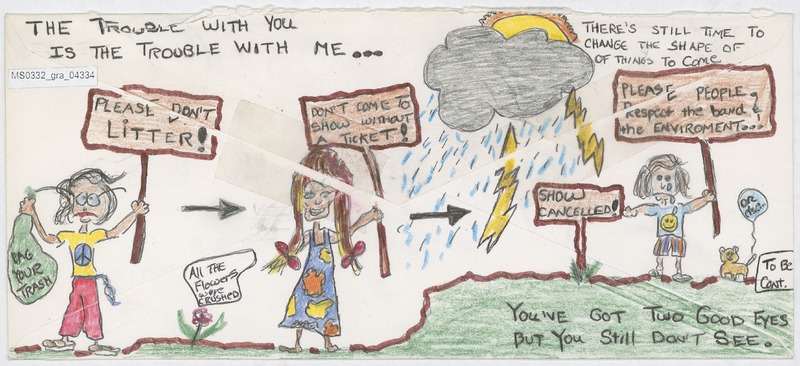 THE TROUBLE WITH YOU
IS THE TROUBLE WITH ME...
MS0332_gra_04334
THERE'S STILL TIME TO
CHANGE THE SHAPE OF
OF THINGS TO COME
PLEASE DON'T
LITTER!
DON'T COME TO
SHOW WITHOUT
A TICKET!
PLEASE PEOPLE,
Respect the band &
the ENVIROMENT...!
BAG
YOUR
TRASH
All THE
Flowers
were
CRUSHED
SHOW
CANCELLED!
To Be
Cont.
YOU'VE GOT TWO GOOD EYES
BUT YOU Still DON'T SEE.